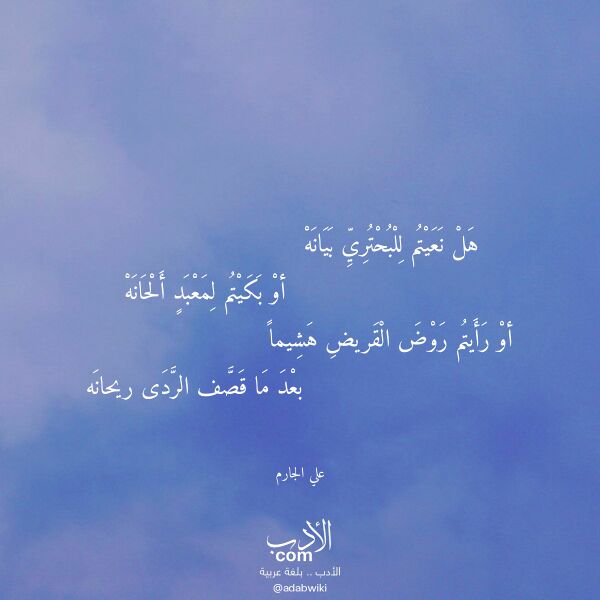 هَلْ نَعَيْتُم لِلْبُحْتُرِيِّ بَيَانَهْ
أوْ بَكَيْتُم لِمَعْبَدٍ أَلْحَانَهْ
أوْ رَأَيتُم رَوْضَ الْقَريضِ هَشِيماً
بعْدَ مَا قَصَّف الرَّدَى ريحانَه
علي الجارم
الأدب
com
الأدب .. بلغة عربية
@adabwiki